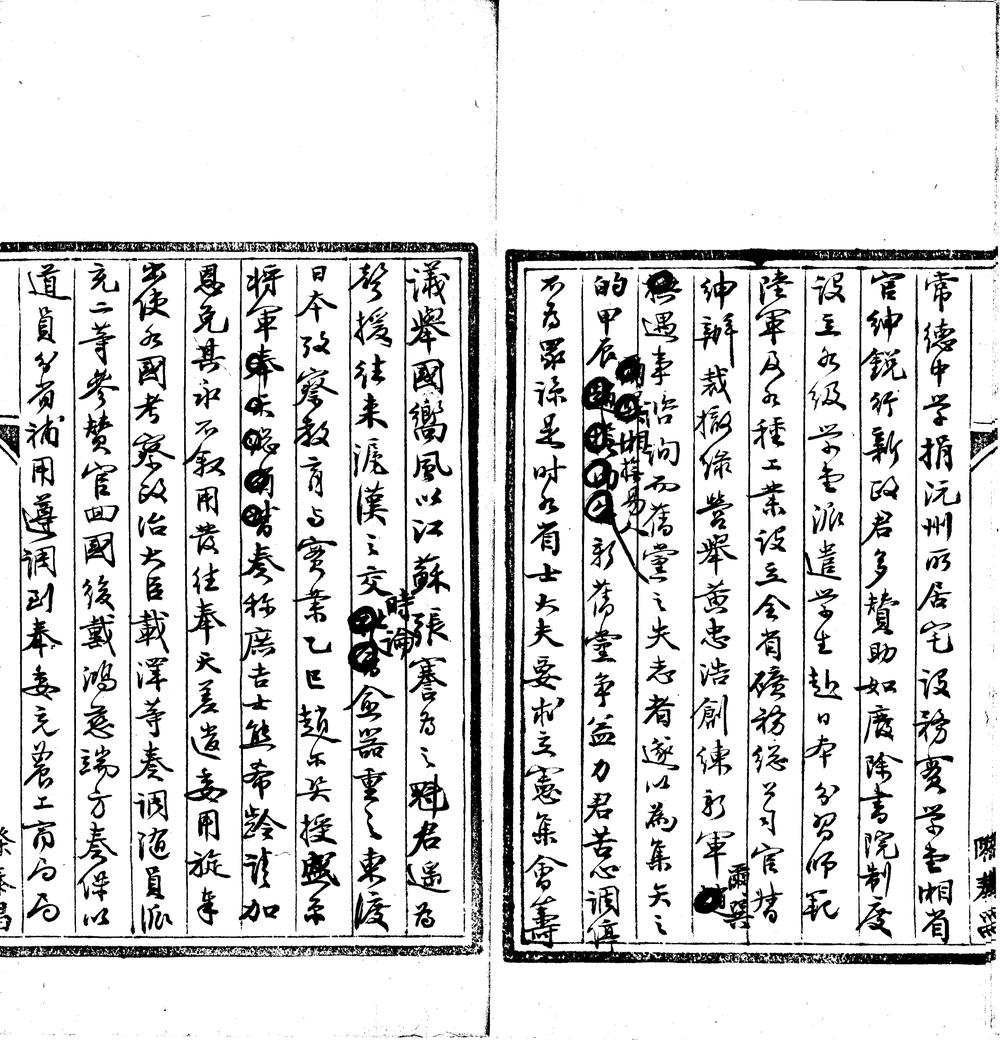 常德中学捐沅州所居宅設務實学堂湘省
官紳銳行新政君多贊助如廢除書院制度
設立各級学堂派遣学生赴日本分習師範
陸軍及各種工業設立全省礦務總公司官督
紳辦裁撤綠營舉黃忠浩創練新軍爾巽
遇事諮詢而舊黨之失志者遂以為集矢之
的甲辰
湘撫易人
新舊黨爭益力君苦心調停
不為眾諒是时各省士大夫要求立憲集會籌
議舉國嚮風以江蘇張謇為之魁君遥為
聲援往来滬漢之交
時論
僉器重之東渡
日本攷察教育与實業乙巳趙尔巽授
将軍
奏称庶吉士熊希齡請加
恩免其永不叙用發往奉天差遣委用旋奉
出使各國考察政治大臣載澤等奏調随員派
充二等參贊官回國後戴鴻慈端方奏保以
道員分省補用遵調到奉委充農工商局局